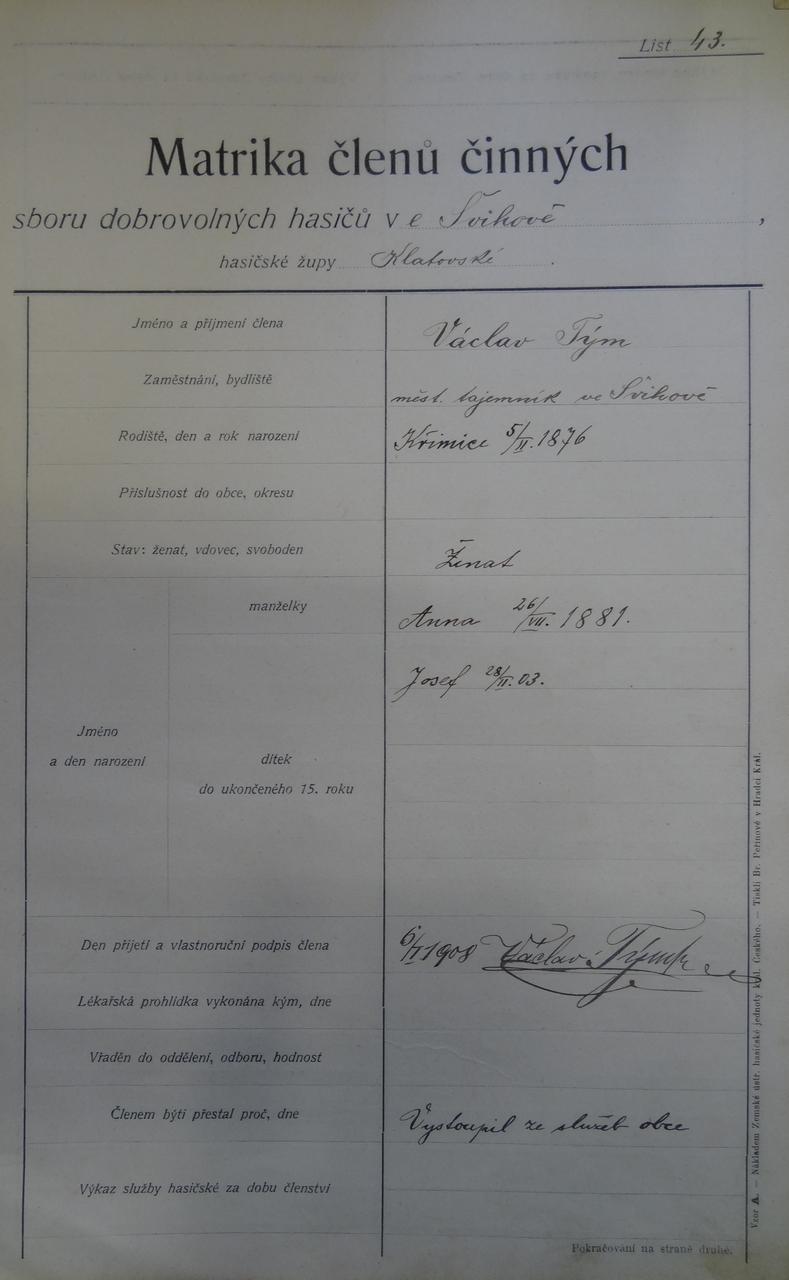 List 43.
Matrika členů činných
sboru dobrovolných hasičů v e Švihově,
hasičské župy Klatovské.
Jméno a příjmení člena Václav Tým
Zaměstnání, bydliště měst. tajemník ve Švihově
Rodiště, den a rok narození Křimice 5/II. 1876
Příslušnost do obce, okresu
Stav: ženat, vdovec, svoboden Ženat
manželky Anna 26/VII. 1881.
Josef 28/II. 03.
Jméno
a den narození
dítek
do ukončeného 15. roku
Den přijetí a vlastnoruční podpis člena 6/I 1908 Václav Tým
Lékařská prohlídka vykonána kým, dne
Vřaděn do oddělení, odboru, hodnost
Členem býti přestal proč, dne Vystoupil ze služeb obce
Výkaz služby hasičské za dobu členství
Pokračování na straně druhé.
Vzor A. — Nákladem Zemské ústř. hasičské jednoty král. Českého. — Tiskli Br. Peřinové v Hradci Král.